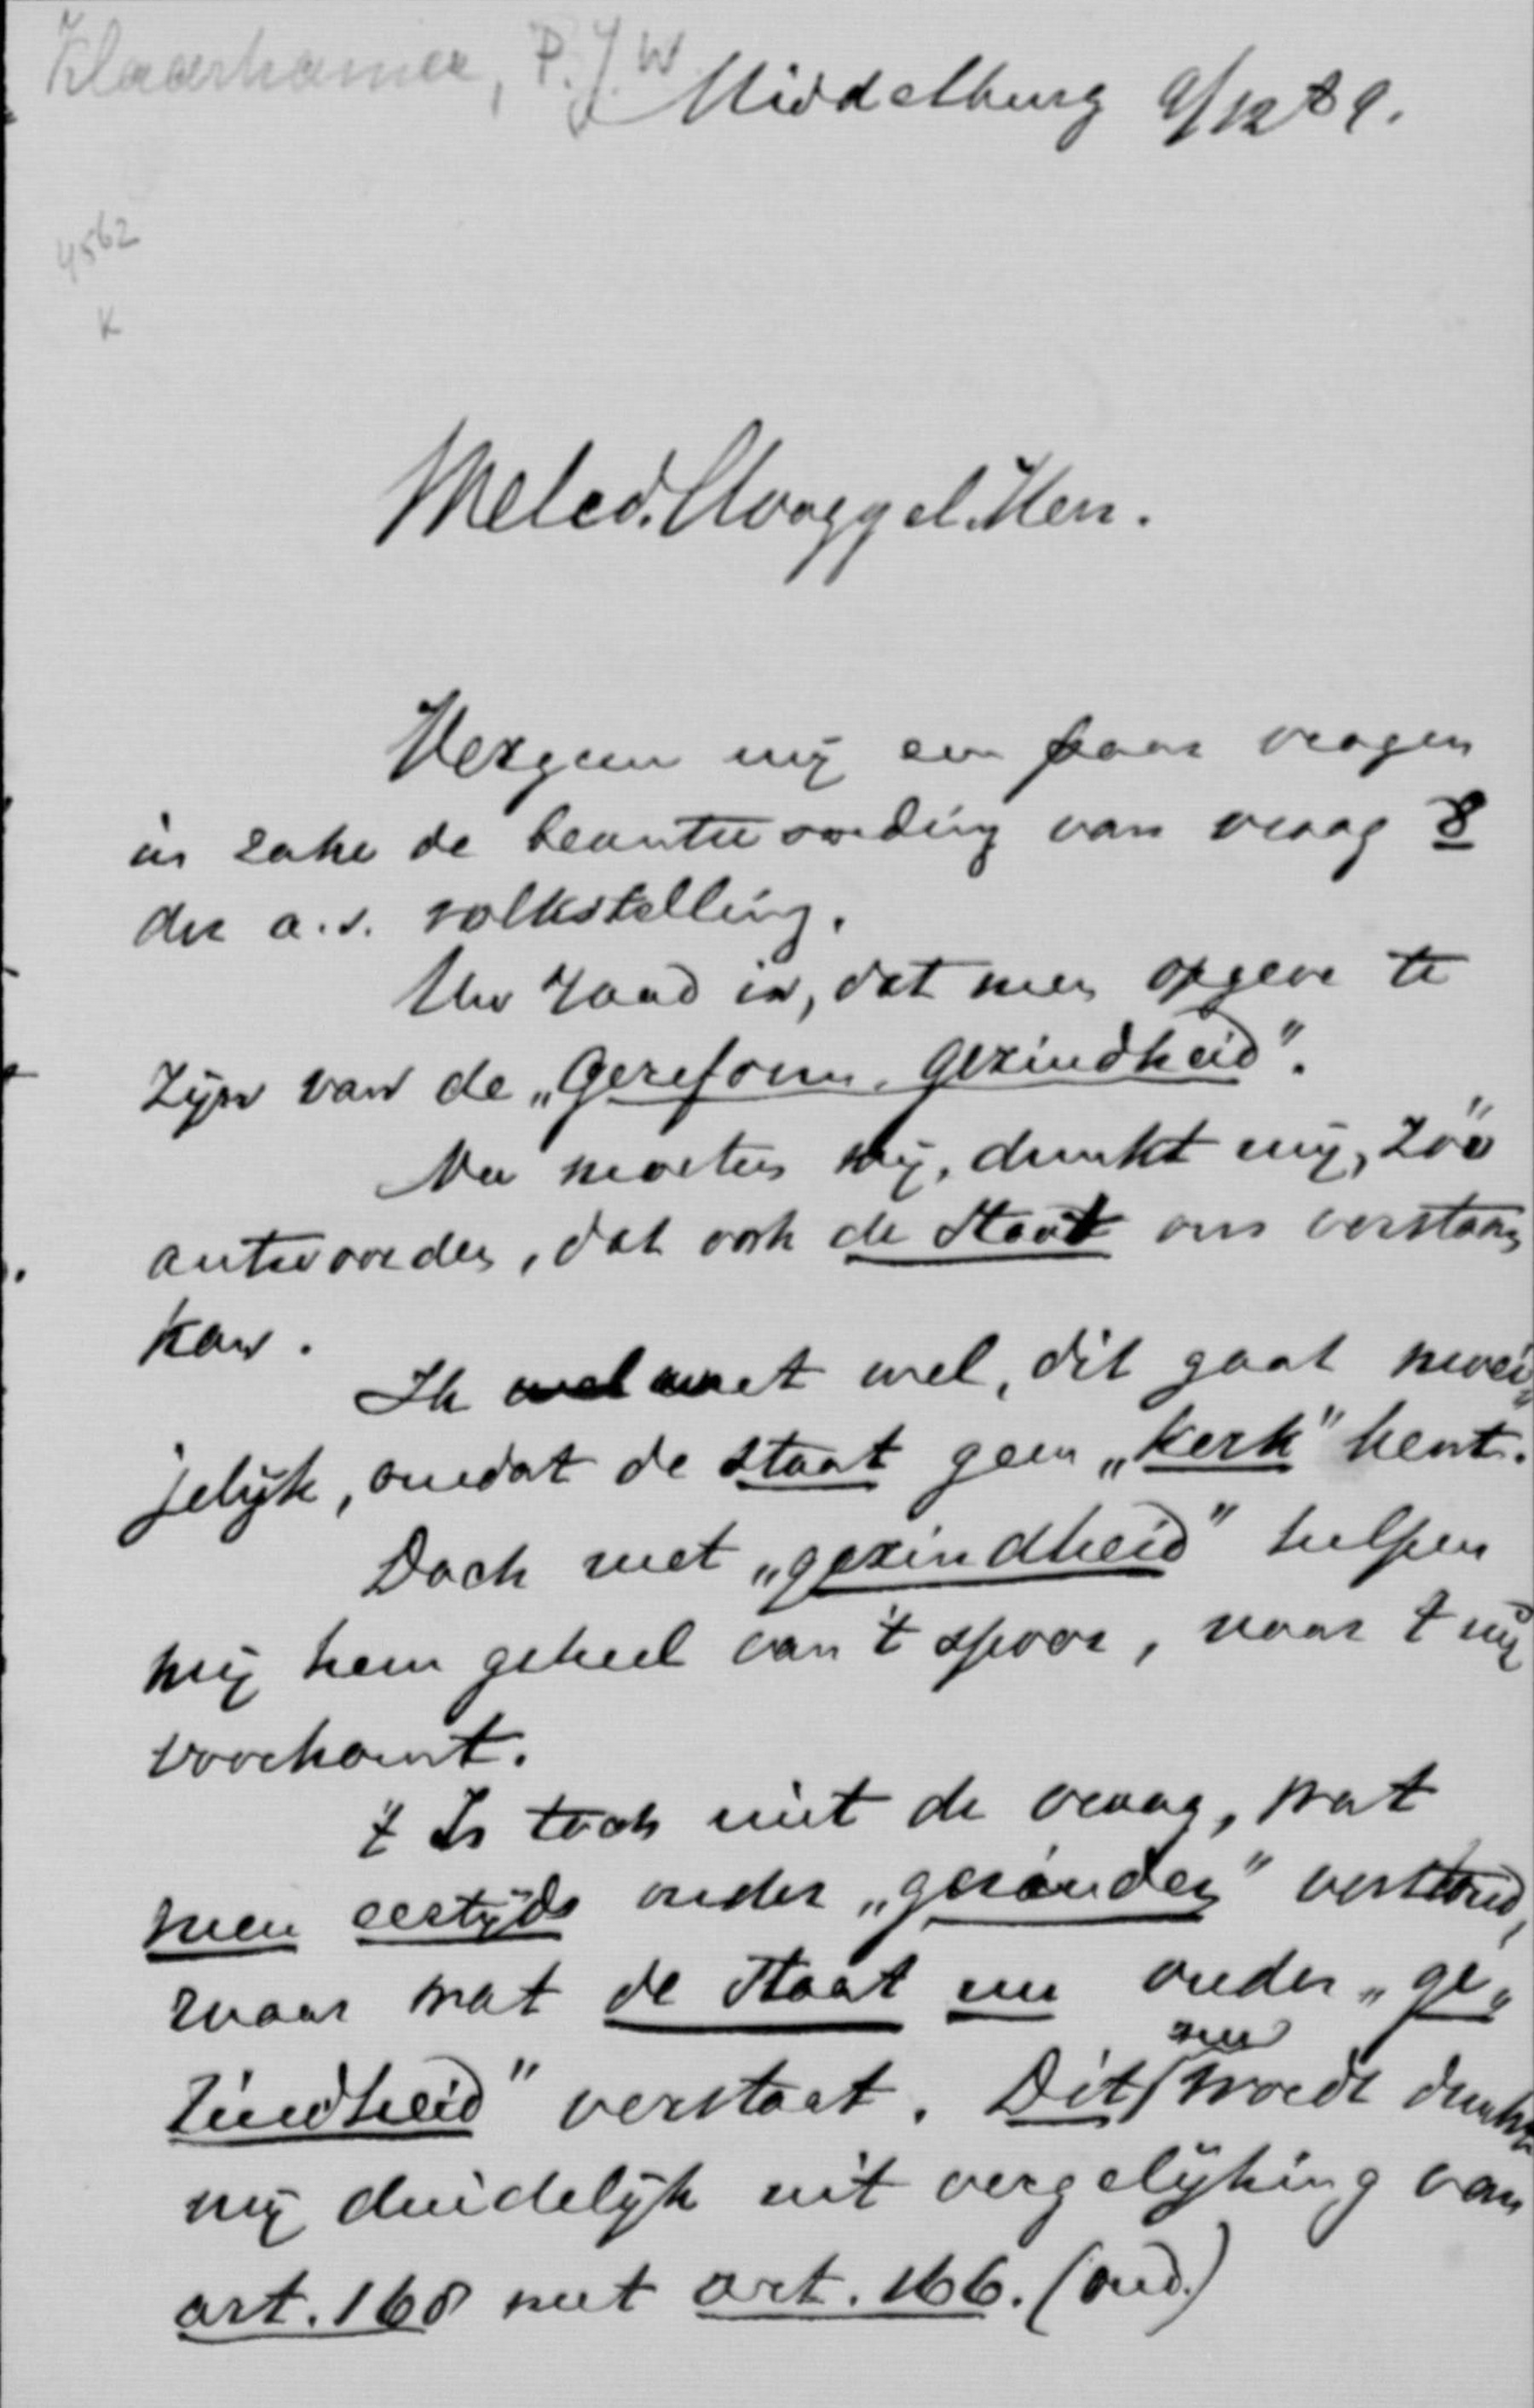 Klaarhamer, P.J.W
Middelburg 9/12 89.
4562
K
WelEd. Hooggel. Heer.
Vergun mij een paar vragen
in zake de beantwoording van vraag 8
der a.s. volkstelling.
Uw raad is, dat men opgeve te
zijn van de „Gereform. gezindheid".
Nu moeten wij, dunkt mij, zóó
antwoorden, dat ook de Staat ons verstaan
kan.
Ik weet wel, dit gaat moei„
jelijk, omdat de Staat geen „Kerk" kent.
Doch met „gezindheid" helpen
wij hem geheel van 't spoor, naar 't mij
voorkomt.
't Is toch niet de vraag, wat
men eertijds onder „gezinden" verstond,
maar wat de Staat nu onder „ge„
zindheid" verstaat. Dit nu wordt dunkt
mij duidelijk uit vergelijking van
art. 168 met art. 166. (oud.)